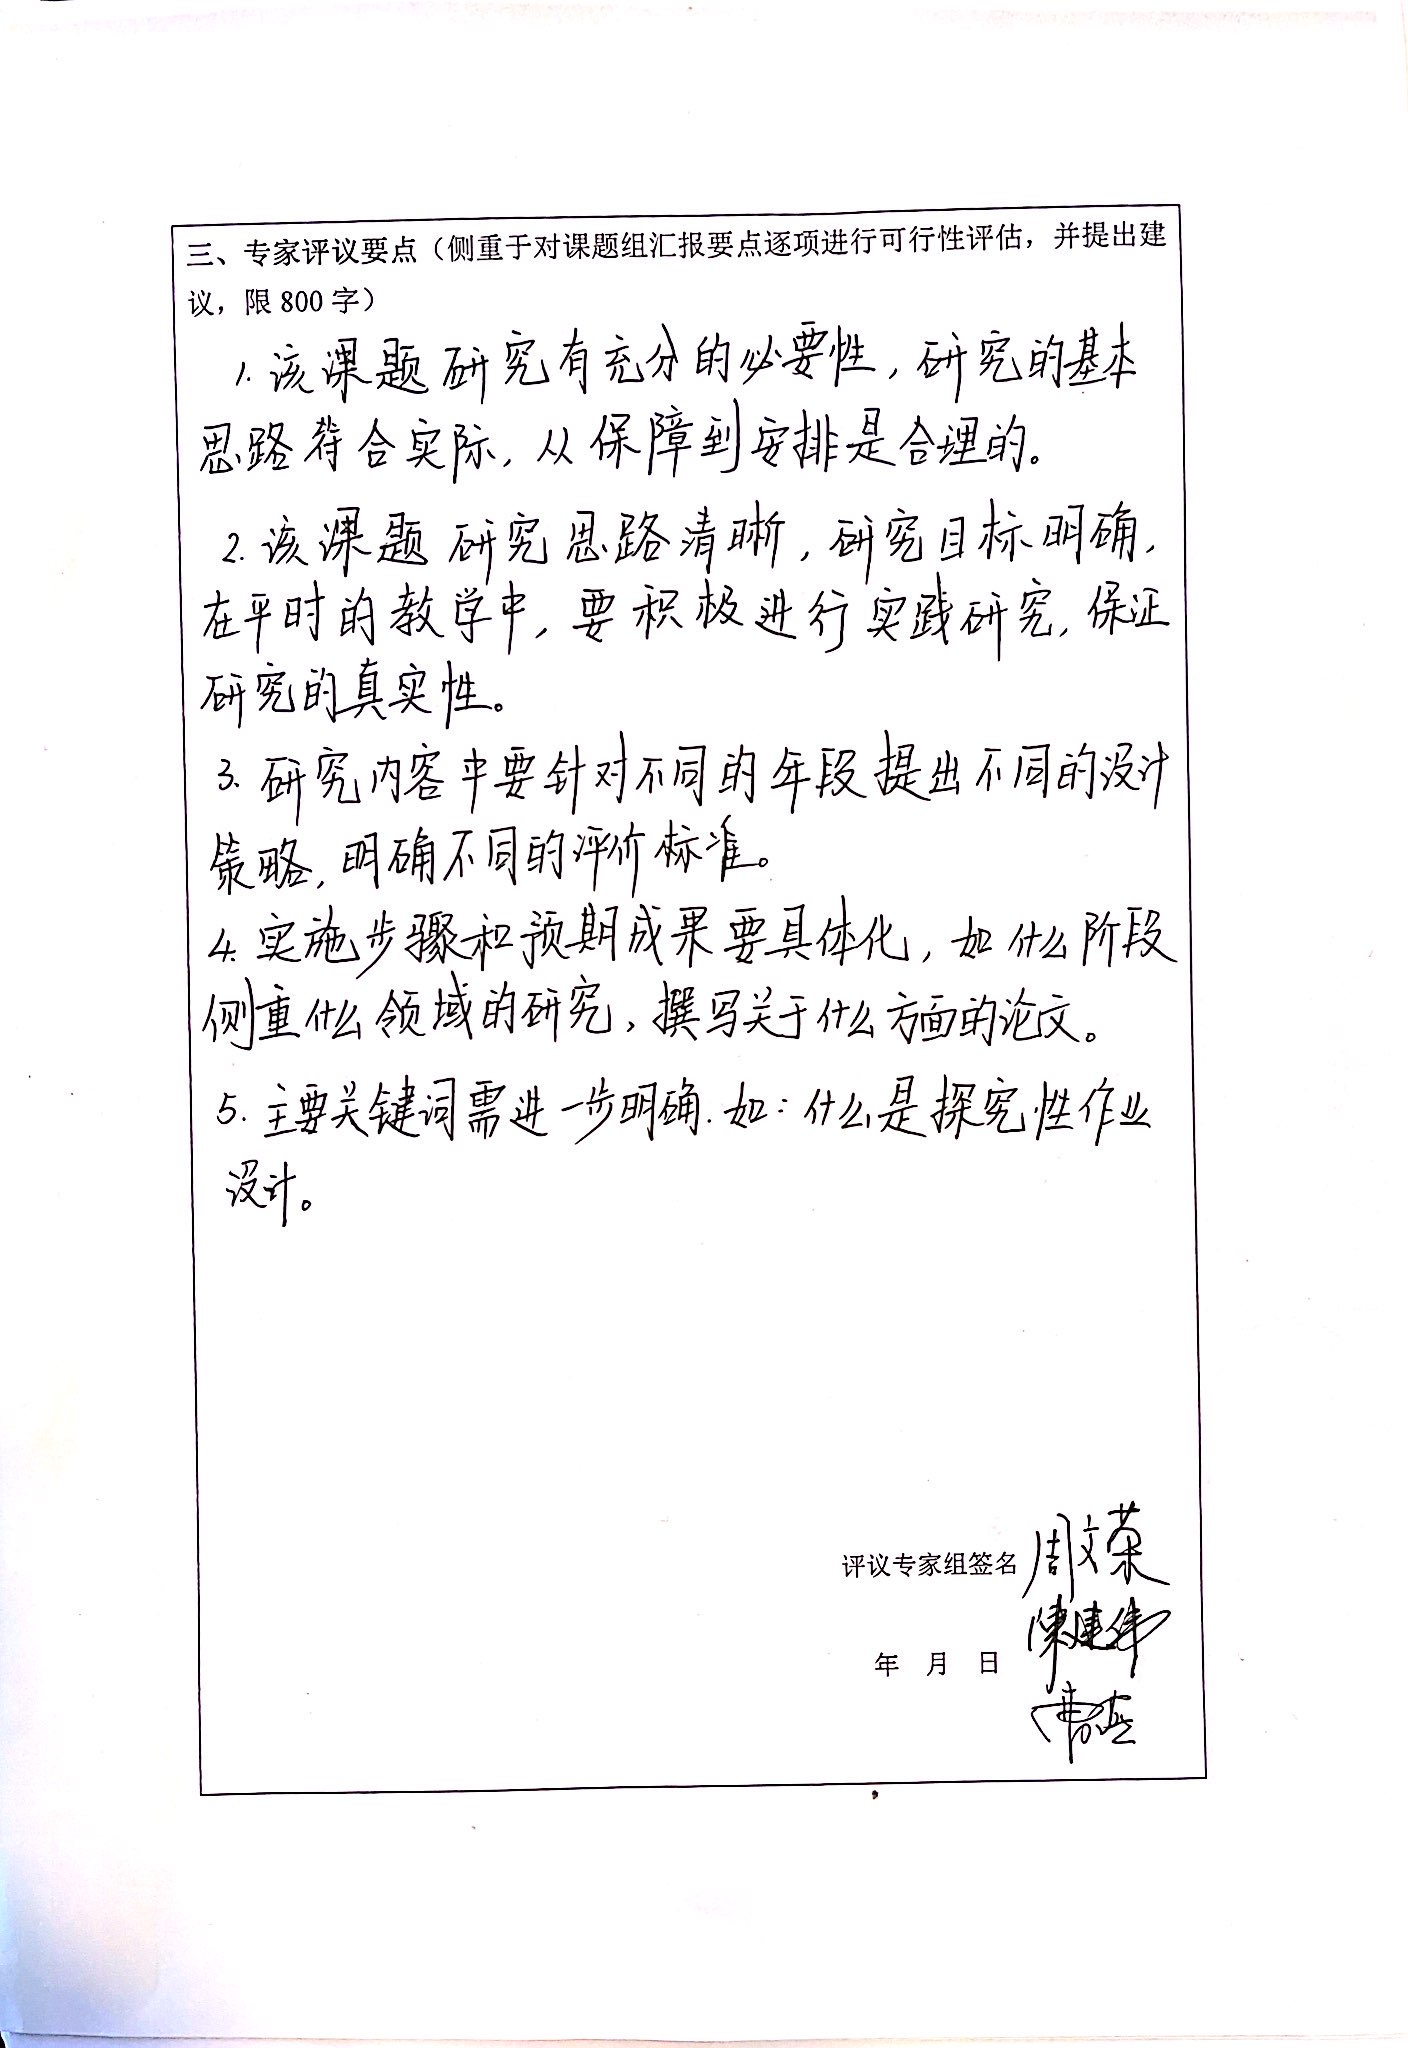 三、专家评议要点（侧重于对课题组汇报要点逐项进行可行性评估，并提出建
议，限 800 字）
1. 该课题研究有充分的必要性，研究的基本
思路符合实际，从保障到安排是合理的。
2. 该课题研究思路清晰，研究目标明确，
在平时的教学中，要积极进行实践研究，保证
研究的真实性。
3. 研究内容中要针对不同的年段提出不同的设计
策略，明确不同的评价标准。
4. 实施步骤和预期成果要具体化，如什么阶段
侧重什么领域的研究，撰写关于什么方面的论文。
5. 主要关键词需进一步明确. 如：什么是探究性作业
设计。
评议专家组签名 周文荣
陳建伟
年 月 日